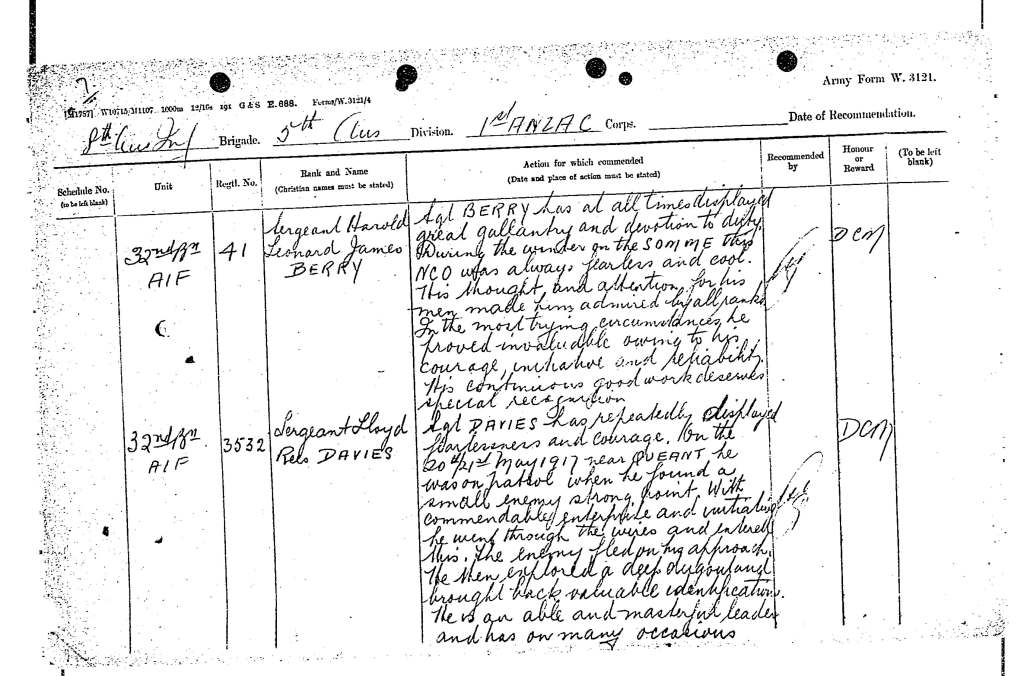 Army Form W. 3121.
W10715/M1107 1000m 12/16s 191 G & S E.688. Forms/W.3121/4
8th Aus Inf Brigade. 5th Aus Division. 1st ANZAC Corps. Date of Recommendation.
Schedule No. (to be left blank)
Unit
Regtl. No.
Rank and Name (Christian names must be stated)
Action for which commended (Date and place of action must be stated)
Recommended by
Honour or Reward
(To be left blank)
32nd Bn
AIF
41
Sergeant Harold
Leonard James
BERRY
Sgt BERRY has at all times displayed
great gallantry and devotion to duty.
During the winter on the SOMME this
NCO was always fearless and cool.
This thought and attention for his
men made him admired by all ranks
In the most trying circumstances he
proved invaluable owing to his
courage, initiative and reliability.
His continuous good work deserves
special recognition
DCM
32nd Bn.
AIF
3532
Sergeant Lloyd
Rees DAVIES
Sgt DAVIES has repeatedly displayed
fearlessness and courage. On the
20th/21st May 1917 near QUEANT he
was on patrol when he found a
small enemy strong point. With
commendable enterprise and initiative
he went through the wires and entered
this. The enemy fled on his approach.
He then explored a deep dugout and
brought back valuable identification.
He is an able and masterful leader
and has on many occasions
DCM